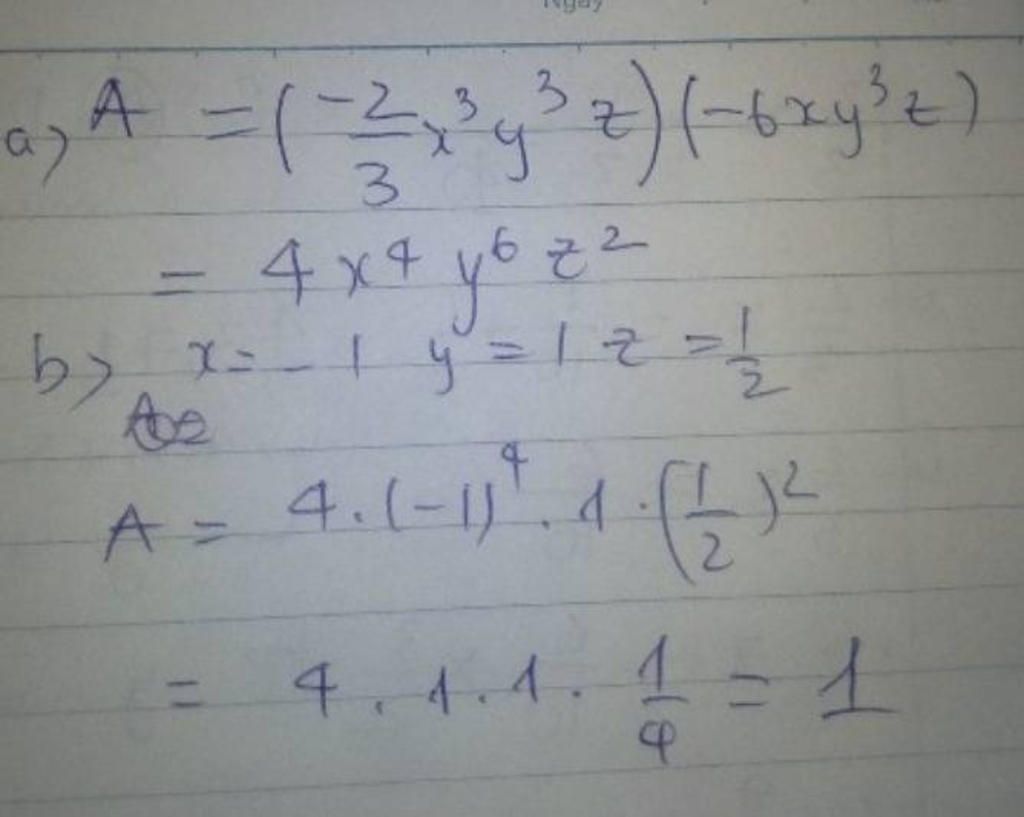 Ngày
a) A = (-2/3 x³y³z)(-6xy³z)
= 4x⁴y⁶z²
b) x = -1 y = 1 z = 1/2
A = 4.(-1)⁴.1.(1/2)²
= 4.1.1.1/4 = 1